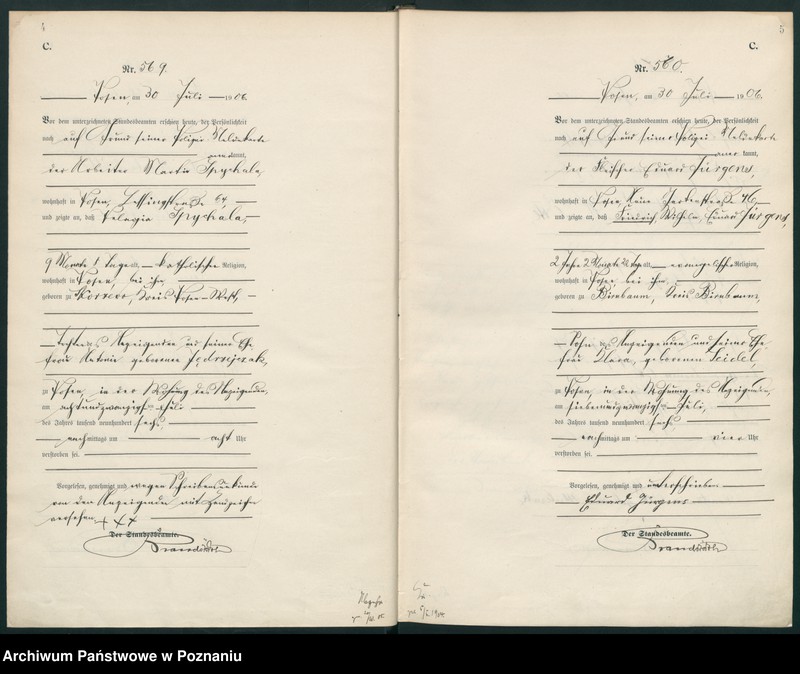 4
C.
Nr. 569.
Posen, am 30 Juli 1906.
Vor dem unterzeichneten Standesbeamten erschien heute, der Persönlichkeit
nach auf Grund seiner Polizei Meldekarte
anerkannt,
der Arbeiter Martin Spychala,
wohnhaft in Posen, Lessingstraße 64
und zeigte an, daß Pelagia Spychala,
9 Monate 1 Tage alt, katholischer Religion,
wohnhaft in Posen, bei ihm,
geboren zu Kreis Posen-West,
Tochter des Anzeigenden und seiner Ehe
frau Antonie geborenen Jedrzejczak,
zu Posen, in der Wohnung des Anzeigenden,
am achtundzwanzigsten Juli
des Jahres tausend neunhundert sechs
nachmittags um acht Uhr
verstorben sei.
Vorgelesen, genehmigt und wegen Schreibensunkunde
von dem Anzeigenden mit Handzeichen
versehen. + + +
Der Standesbeamte.
5
C.
Nr. 560.
Posen, am 30 Juli 1906.
Vor dem unterzeichneten Standesbeamten erschien heute, der Persönlichkeit
nach auf Grund seiner Polizei Meldekarte
anerkannt,
der Fleischer Eduard Jürgens,
wohnhaft in Posen, Kleine Gerberstraße 46,
und zeigte an, daß Friedrich Wilhelm Eduard Jürgens,
2 Jahre 2 Monate Tage alt, evangelischer Religion,
wohnhaft in Posen bei ihm,
geboren zu Birnbaum, Kreis Birnbaum,
Sohn des Anzeigenden und seiner Ehe
frau Klara, geborenen Seidel,
zu Posen, in der Wohnung des Anzeigenden,
am siebenundzwanzigsten Juli,
des Jahres tausend neunhundert sechs
nachmittags um vier Uhr
verstorben sei.
Vorgelesen, genehmigt und unterschrieben
Eduard Jürgens
Der Standesbeamte.
Archiwum Państwowe w Poznaniu